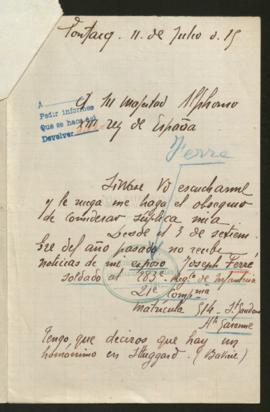 Pontacq, 11. de Julio d. 15
A
Pedir informes
Que se hace así
Devolver
A Su majestad Alphonso
XIII rey de España
Ferré
Sírvase Vd escucharme
y le ruega me haga el obsequio
de considerar súplica mía
Desde el 3 de setiem
bre del año pasado no recibe
noticias de mi esposo Joseph Ferré
soldado al 283e. Regto de Infantería
21e Compnia
Matrícula 514 - St. Gaudens
Hte Garonne
Tengo que deciros que hay un
homonimo en Stuggard. (Bavière)